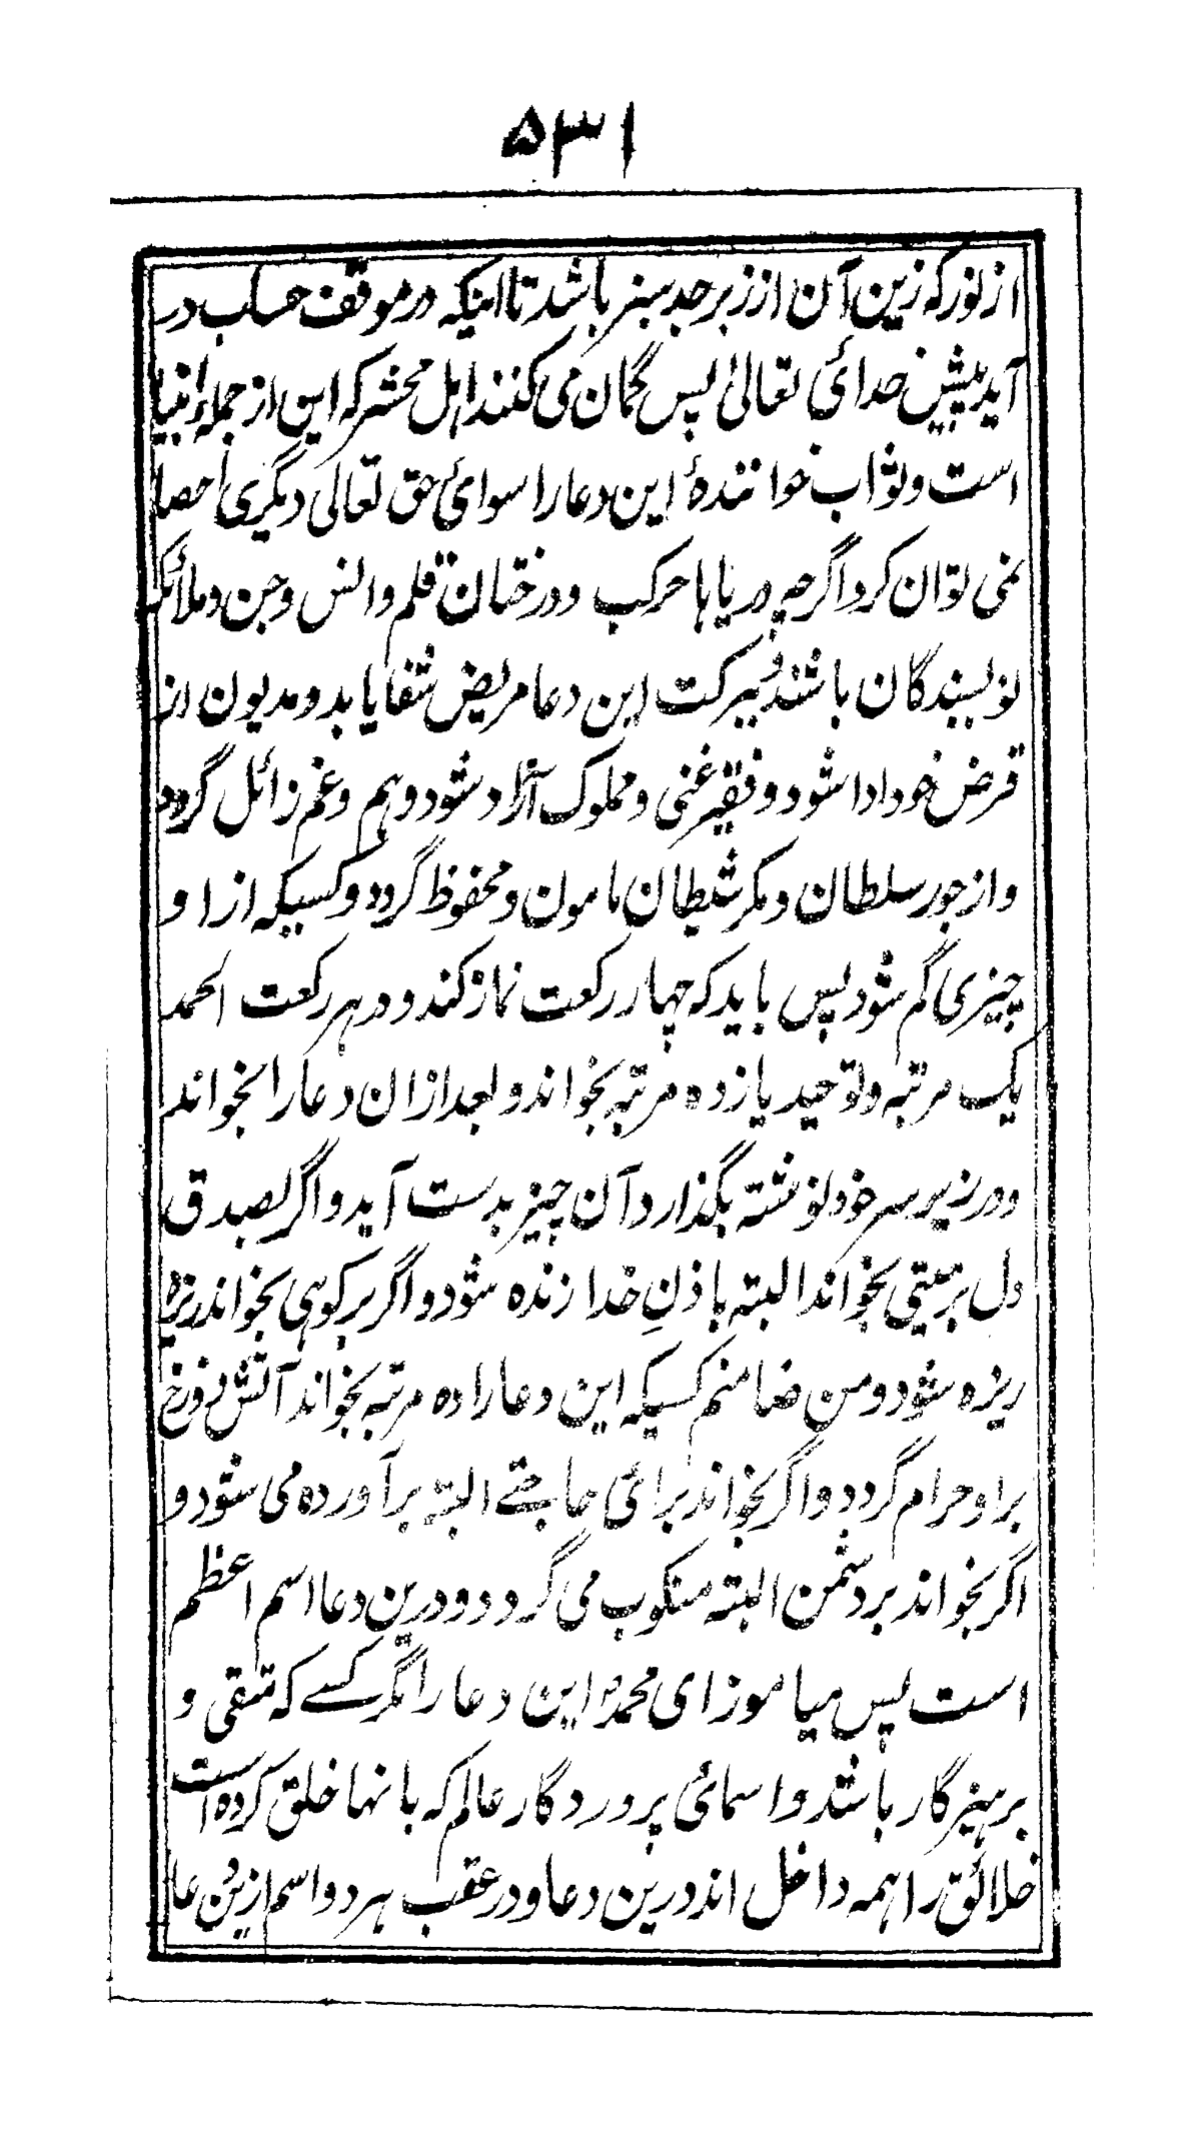 ۵۳۱
از نور که زین آن از زبرجد سبز باشد تا اینکه در موقف حساب در
آید پیش خدائی تعالیٰ پس گمان می کنند اہل محشر که این از جملهٔ انبیا
است و ثواب خوانندهٔ این دعا را سوائی حق تعالی دیگری احصا
نمی توان کرد اگرچه دریاها مرکب و درختان قلم و انس و جن و ملائکه
نویسندگان باشند و ببرکت این دعا مریض شفا یابد و مدیون از
قرض خود ادا شود و فقیر غنی و مملوک آزاد شود و ہم و غم زائل گردد
و از جور سلطان و مکر شیطان مامون و محفوظ گردد و کسیکه از او
چیزی گم شود پس باید که چہار رکعت نماز کند و در ہر رکعت الحمد
یک مرتبه و توحید یازده مرتبه بخواند و بعد ازان دعا را بخواند
و در زیر سر خود نوشته بگذارد آن چیز بدست آید و اگر بصدق
دل بر میتی بخواند البته باذنِ خدا زنده شود و اگر بر کوہی بخواند ریزه
ریزه شود و من ضامنم کسیکه این دعا را ده مرتبه بخواند آتش دوزخ
بر او حرام گردد و اگر بخواند برائی حاجتے البته برآورده می شود و
اگر بخواند بر دشمن البته منکوب می گردد و درین دعا اسم اعظم
است پس میاموز ای محمدؐ این دعا را مگر کسے که متقی و
پرہیزگار باشد و اسمائی پروردگار عالم که بانہا خلق کرده است
خلائق را ہمه داخل اند درین دعا و در عقب ہر دو اسم ازین دعا